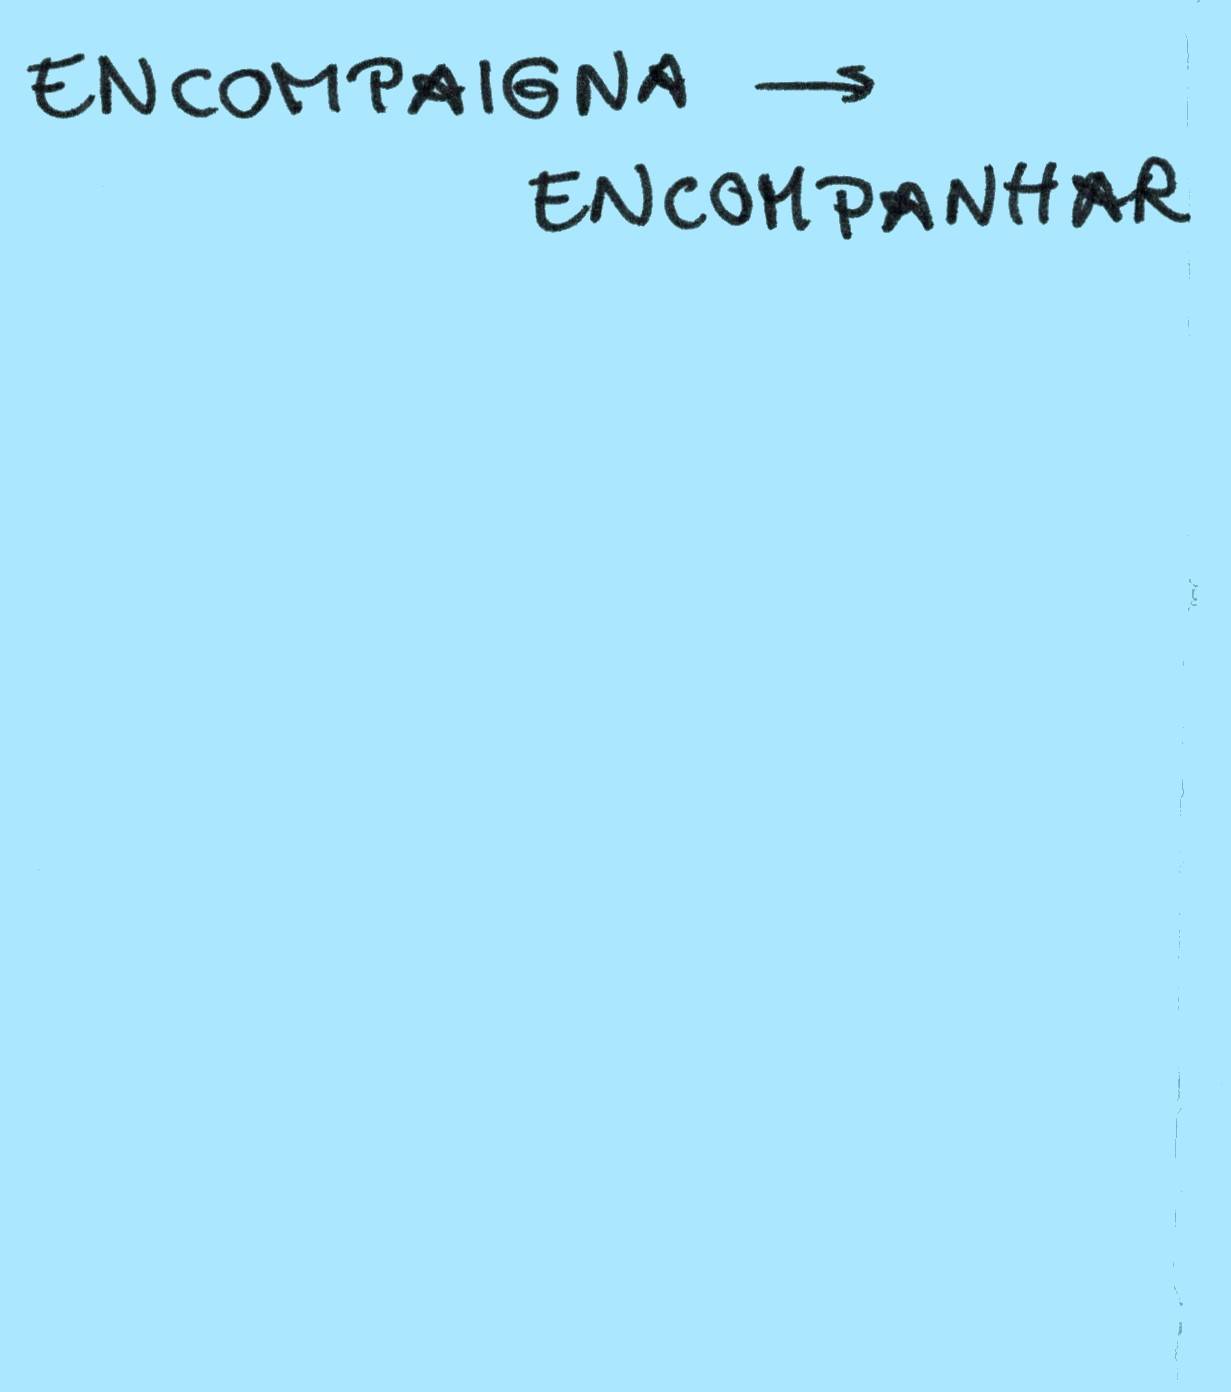 ENCOMPAIGNA →
ENCOMPANHAR